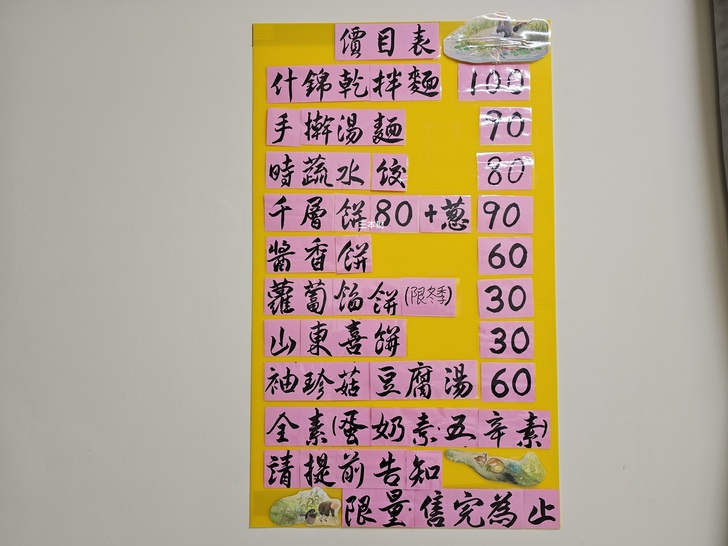 價目表
什錦乾拌麵 100
手擀湯麵 90
時蔬水餃 80
千層餅80+蔥 90
醬香餅 60
蘿蔔餡餅(限冬季) 30
山東喜餅 30
袖珍菇豆腐湯 60
全素(蛋奶素五辛素)
請提前告知
限量售完為止